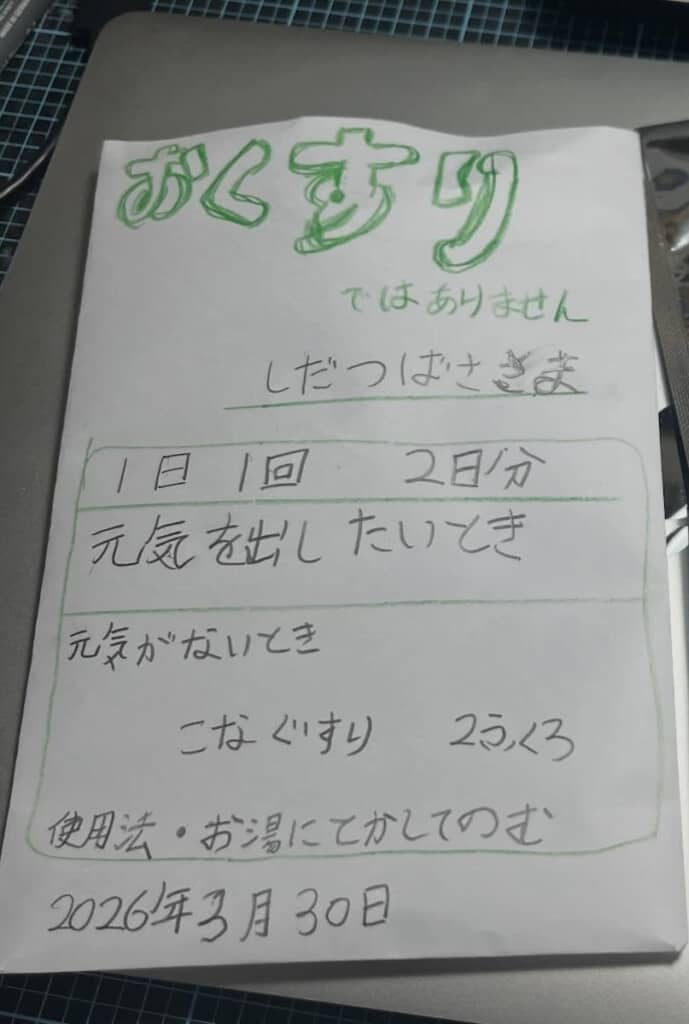 おくすり
ではありません
しだつばささま
1日 1回 2日分
元気を出したいとき
元気がないとき
こなぐすり 2ふくろ
使用法・お湯にてかしてのむ
2026年3月30日